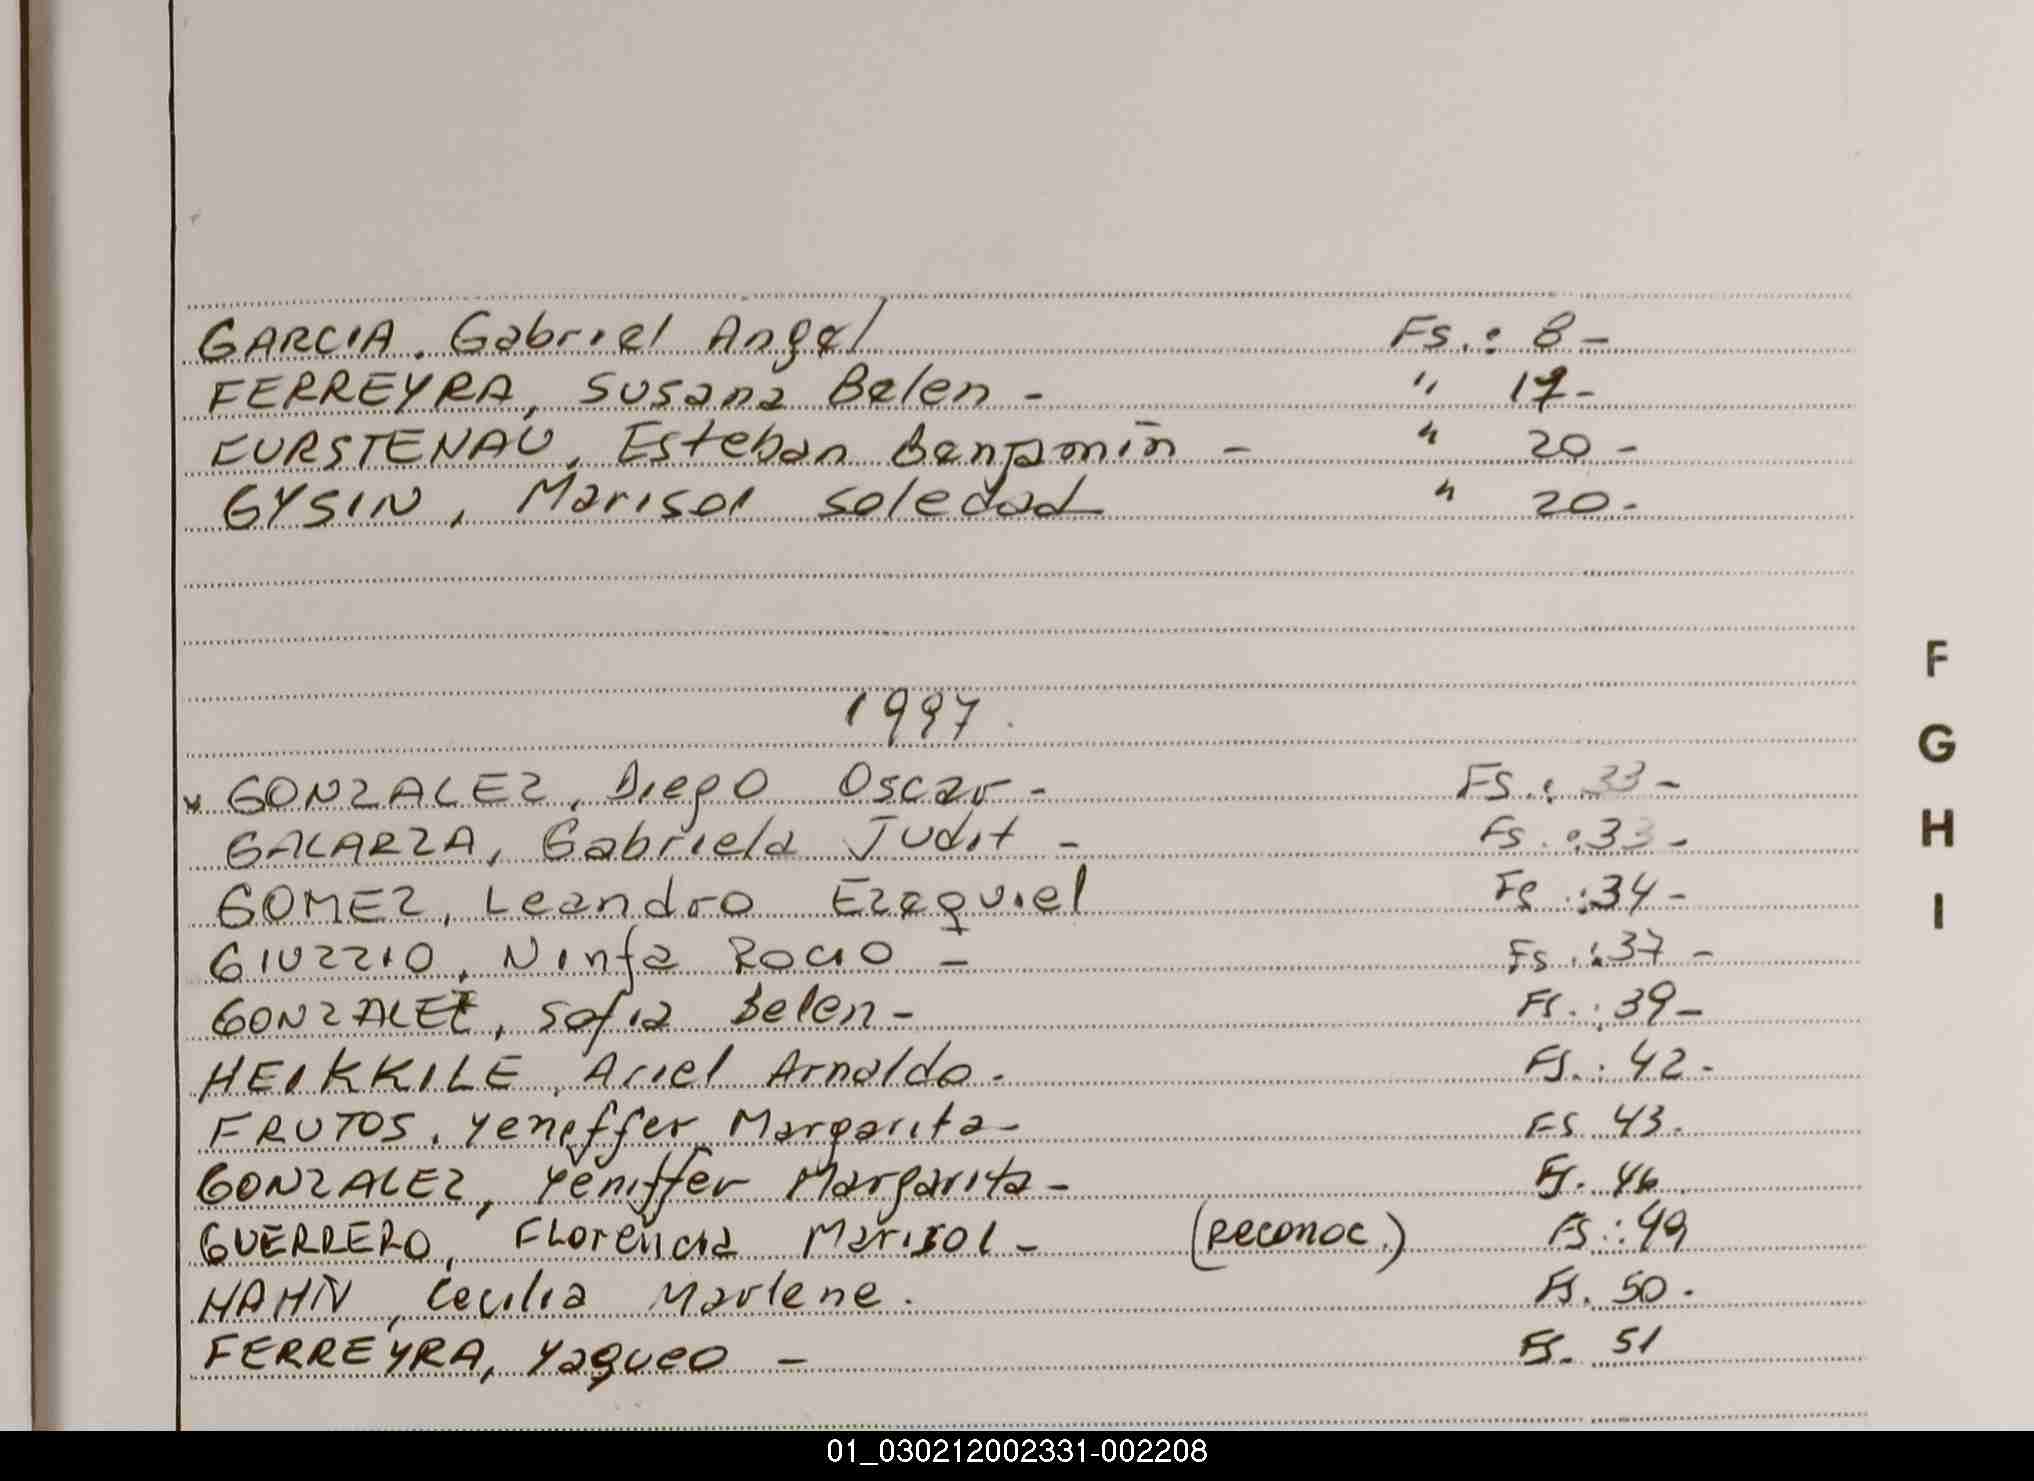 GARCIA. Gabriel Angel Fs.: 8 -
FERREYRA, Susana Belen - " 17 -
FURSTENAU, Esteban Benjamin - " 20 -
GYSIN, Marisol Soledad " 20 -
1997.
GONZALEZ, Diego Oscar - Fs.: 33 -
GALARZA, Gabriela Judit - Fs.: 33 -
GOMEZ, Leandro Ezequiel Fs.: 34 -
GIUZZIO, Ninfa Rocio - Fs.: 37 -
GONZALEZ, Sofia Belen - Fs.: 39 -
HEIKKILE, Ariel Arnaldo. Fs.: 42 -
FRUTOS, Yeneffer Margarita - Fs 43.
GONZALEZ, Yeniffer Margarita - Fs. 46
GUERRERO, Florencia Marisol - (Reconoc.) Fs.: 49
HAHN, Cecilia Marlene. Fs. 50.
FERREYRA, Yaqueo - Fs. 51
F
G
H
I
01_030212002331-002208